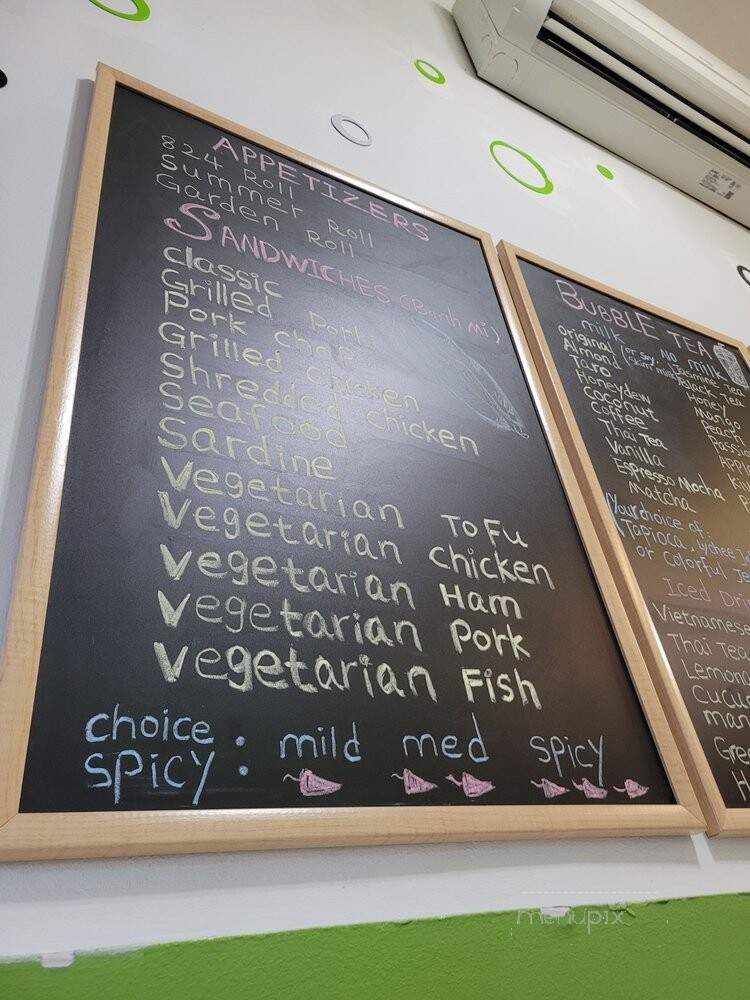 APPETIZERS
824 Roll
Summer Roll
Garden Roll
SANDWICHES (Banh Mi)
classic
Grilled Pork
Pork chop
Grilled chicken
Shredded chicken
Seafood
Sardine
Vegetarian ToFu
Vegetarian chicken
Vegetarian Ham
Vegetarian Pork
Vegetarian Fish
choice
SPICY : mild med spicy
BUBBLE TEA
milk
(or soy,
skim milk)
original
Almond
Taro
Honeydew
Coconut
Coffee
Thai Tea
Vanilla
Espresso Mocha
Matcha
No milk
Jasmine Tea
Black Tea
Honey
Mango
Peach
Your choice of:
Tapioca, Lychee
or Colorful
Iced
Vietnamese
Thai Tea
menupix